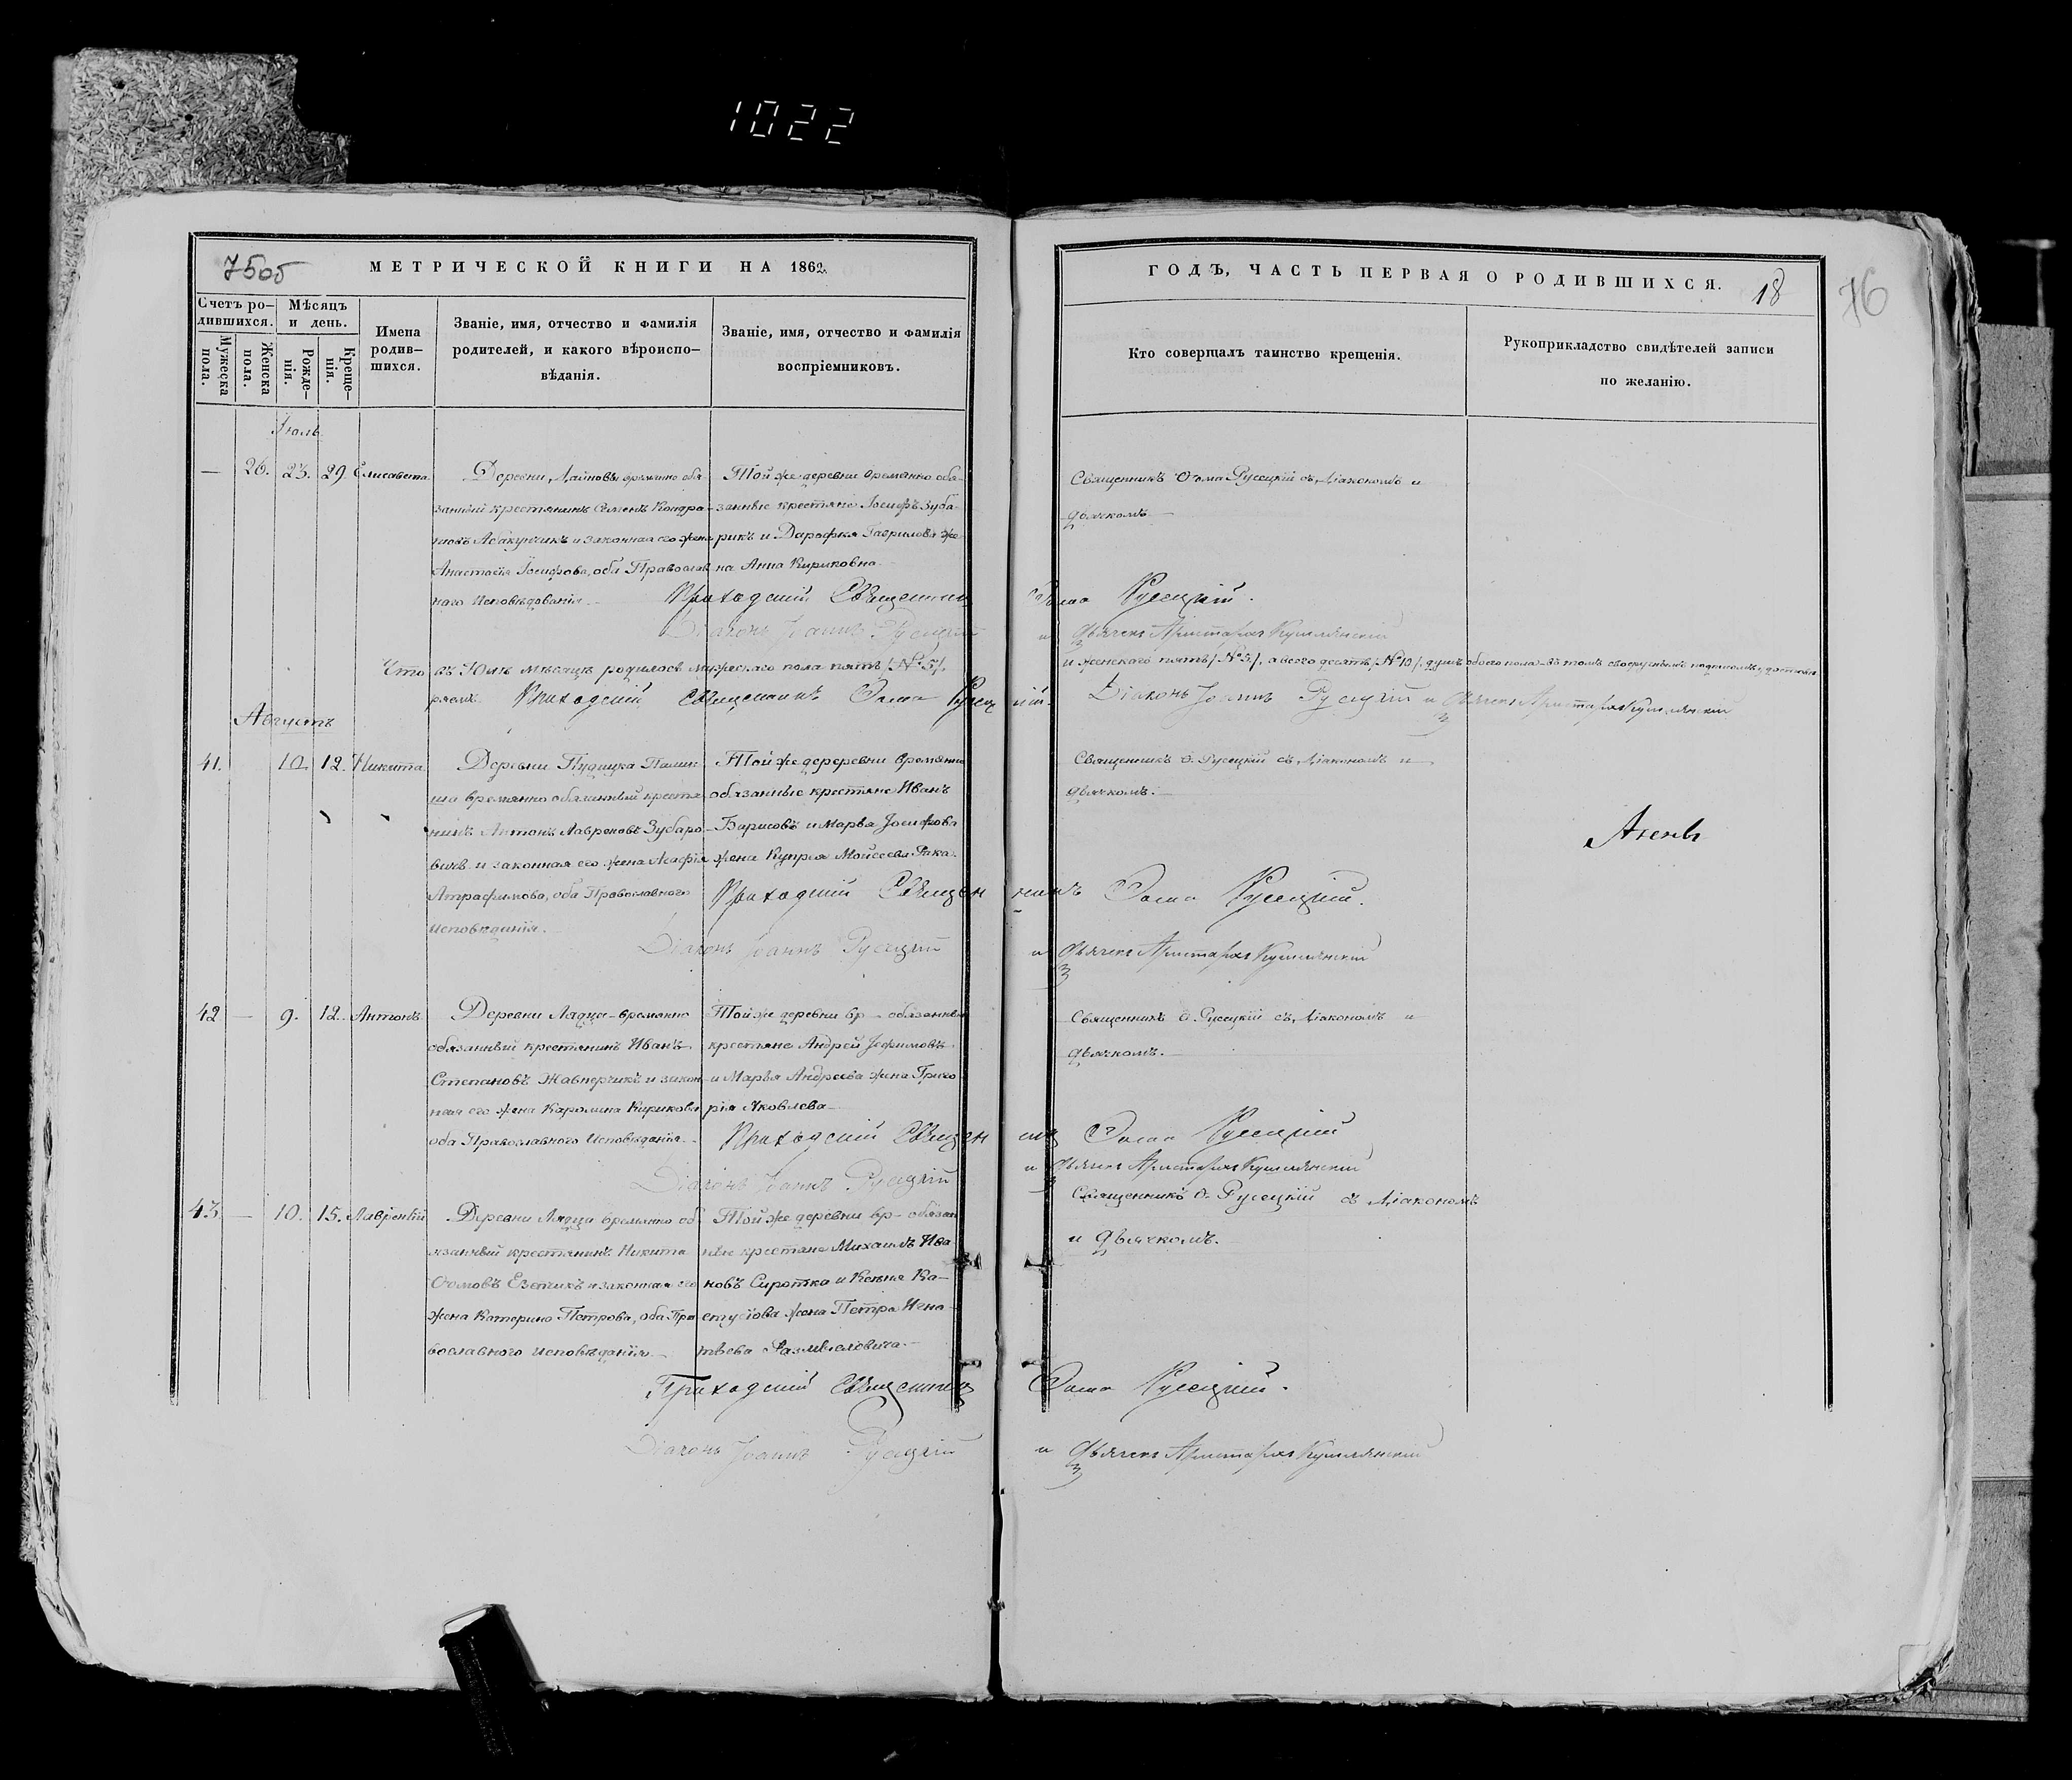 1022
750б
МЕТРИЧЕСКОЙ КНИГИ НА 1862
Счетъ ро-
дившихся.
Мужеска
пола.
Женска
пола.
Мѣсяцъ
и день.
Рожде-
нія.
Креще-
нія.
Имена
родив-
шихся.
Званіе, имя, отчество и фамилія
родителей, и какого вѣроиспо-
вѣданія.
Званіе, имя, отчество и фамилія
воспріемниковъ.
ГОДЪ, ЧАСТЬ ПЕРВАЯ О РОДИВШИХСЯ.
18
76
Кто совершалъ таинство крещенія.
Рукоприкладство свидѣтелей записи
по желанію.
Іюль
— 26. 23. 29. Елисавета
Деревни Дайновы временно обя-
занный крестянинъ Семенъ Кондра-
товъ Абакунчикъ и законная его жена
Анастасія Іосифова, оба Православ
наго Исповѣданія.
Той же деревни временно обя-
занные крестяне Іосифъ Зуба-
рикъ и Дарофея Гаврилова же-
на Анна Кирикова
Священникъ Ѳома Русецкій съ Діакономъ и
дьячкомъ.
Приходскій Священникъ Ѳома Русецкій.
Діаконъ Іоаннъ Русецкій и Дьячекъ Аристархъ
Что въ Юлѣ мѣсяцѣ родилось мужескаго пола пять /№ 5/. и женскаго пять /№ 5/, а всего десять /№ 10/. душъ обоего пола – въ томъ своеручнымъ подписомъ удостовѣ
ряемъ. Приходскій Священникъ Ѳома Русецкій. Діаконъ Іоаннъ Русецкій и Дьячекъ Аристархъ
Августъ
41. 10. 12. Никита
Деревни
временно обязанный крестя
нинъ Антонъ Лавреновъ Зубаро-
вичъ и законная его жена Агафія
Атрафимова, оба Православнаго
исповѣданія.
Той же дереревни временно
обязанные крестяне Иванъ
Барисовъ и Марья Іосифова
жена Купрея Мойсеева
Священникъ Ѳ. Русецкій съ Діакономъ и
дьячкомъ.
Приходскій Священникъ Ѳома Русецкій.
Діаконъ Іоаннъ Русецкій и Дьячекъ Аристархъ
42 — 9. 12. Антонъ
Деревни Лядца – временно
обязанный крестянинъ Иванъ
Степановъ Жавнерчикъ и закон-
ная его жена Каролина Кирикова
оба Православнаго Исповѣданія.
Той же деревни вр – обязанные
крестяне Андрей Іефимовъ
и Марья Андреева жена Григо
рія Яковлева
Священникъ Ѳ. Русецкій съ Діакономъ и
дьячкомъ.
Приходскій Священникъ Ѳома Русецкій
Діаконъ Іоаннъ Русецкій и Дьячекъ Аристархъ
43 — 10. 15. Лаврентій
Деревни Лядца временно об
язанный крестянинъ Никита
Ѳомовъ и законная его
жена Катерина Петрова, оба Пра
вославнаго исповѣданія
Той же деревни вр – обязан
ные крестяне Михаилъ Ива
новъ Сиротка и Ксеня Ка-
стусіова жена Петра Игна-
тьева
Священникъ Ѳ. Русецкій съ Діакономъ
и дьячкомъ.
Приходскій Священникъ Ѳома Русецкій.
Діаконъ Іоаннъ Русецкій и Дьячекъ Аристархъ